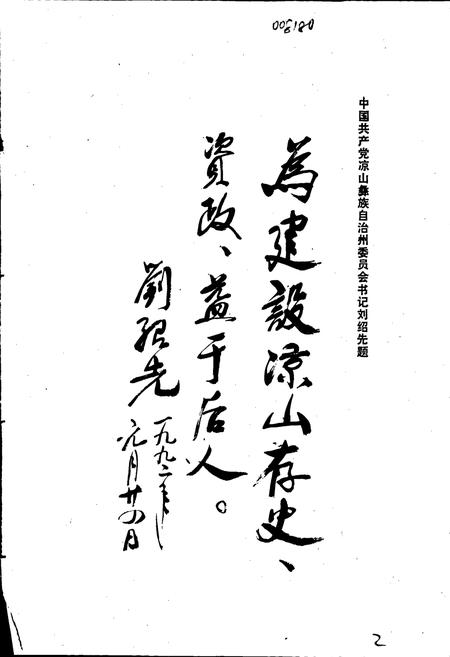 中国共产党凉山彝族自治州委员会书记刘绍先题
為建設凉山存史、
資政、益于后人。
劉紹先
一九九二年
元月廿四日
2